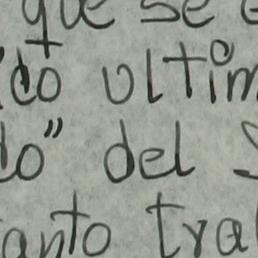 que se
do ultim
do" del S
anto tra